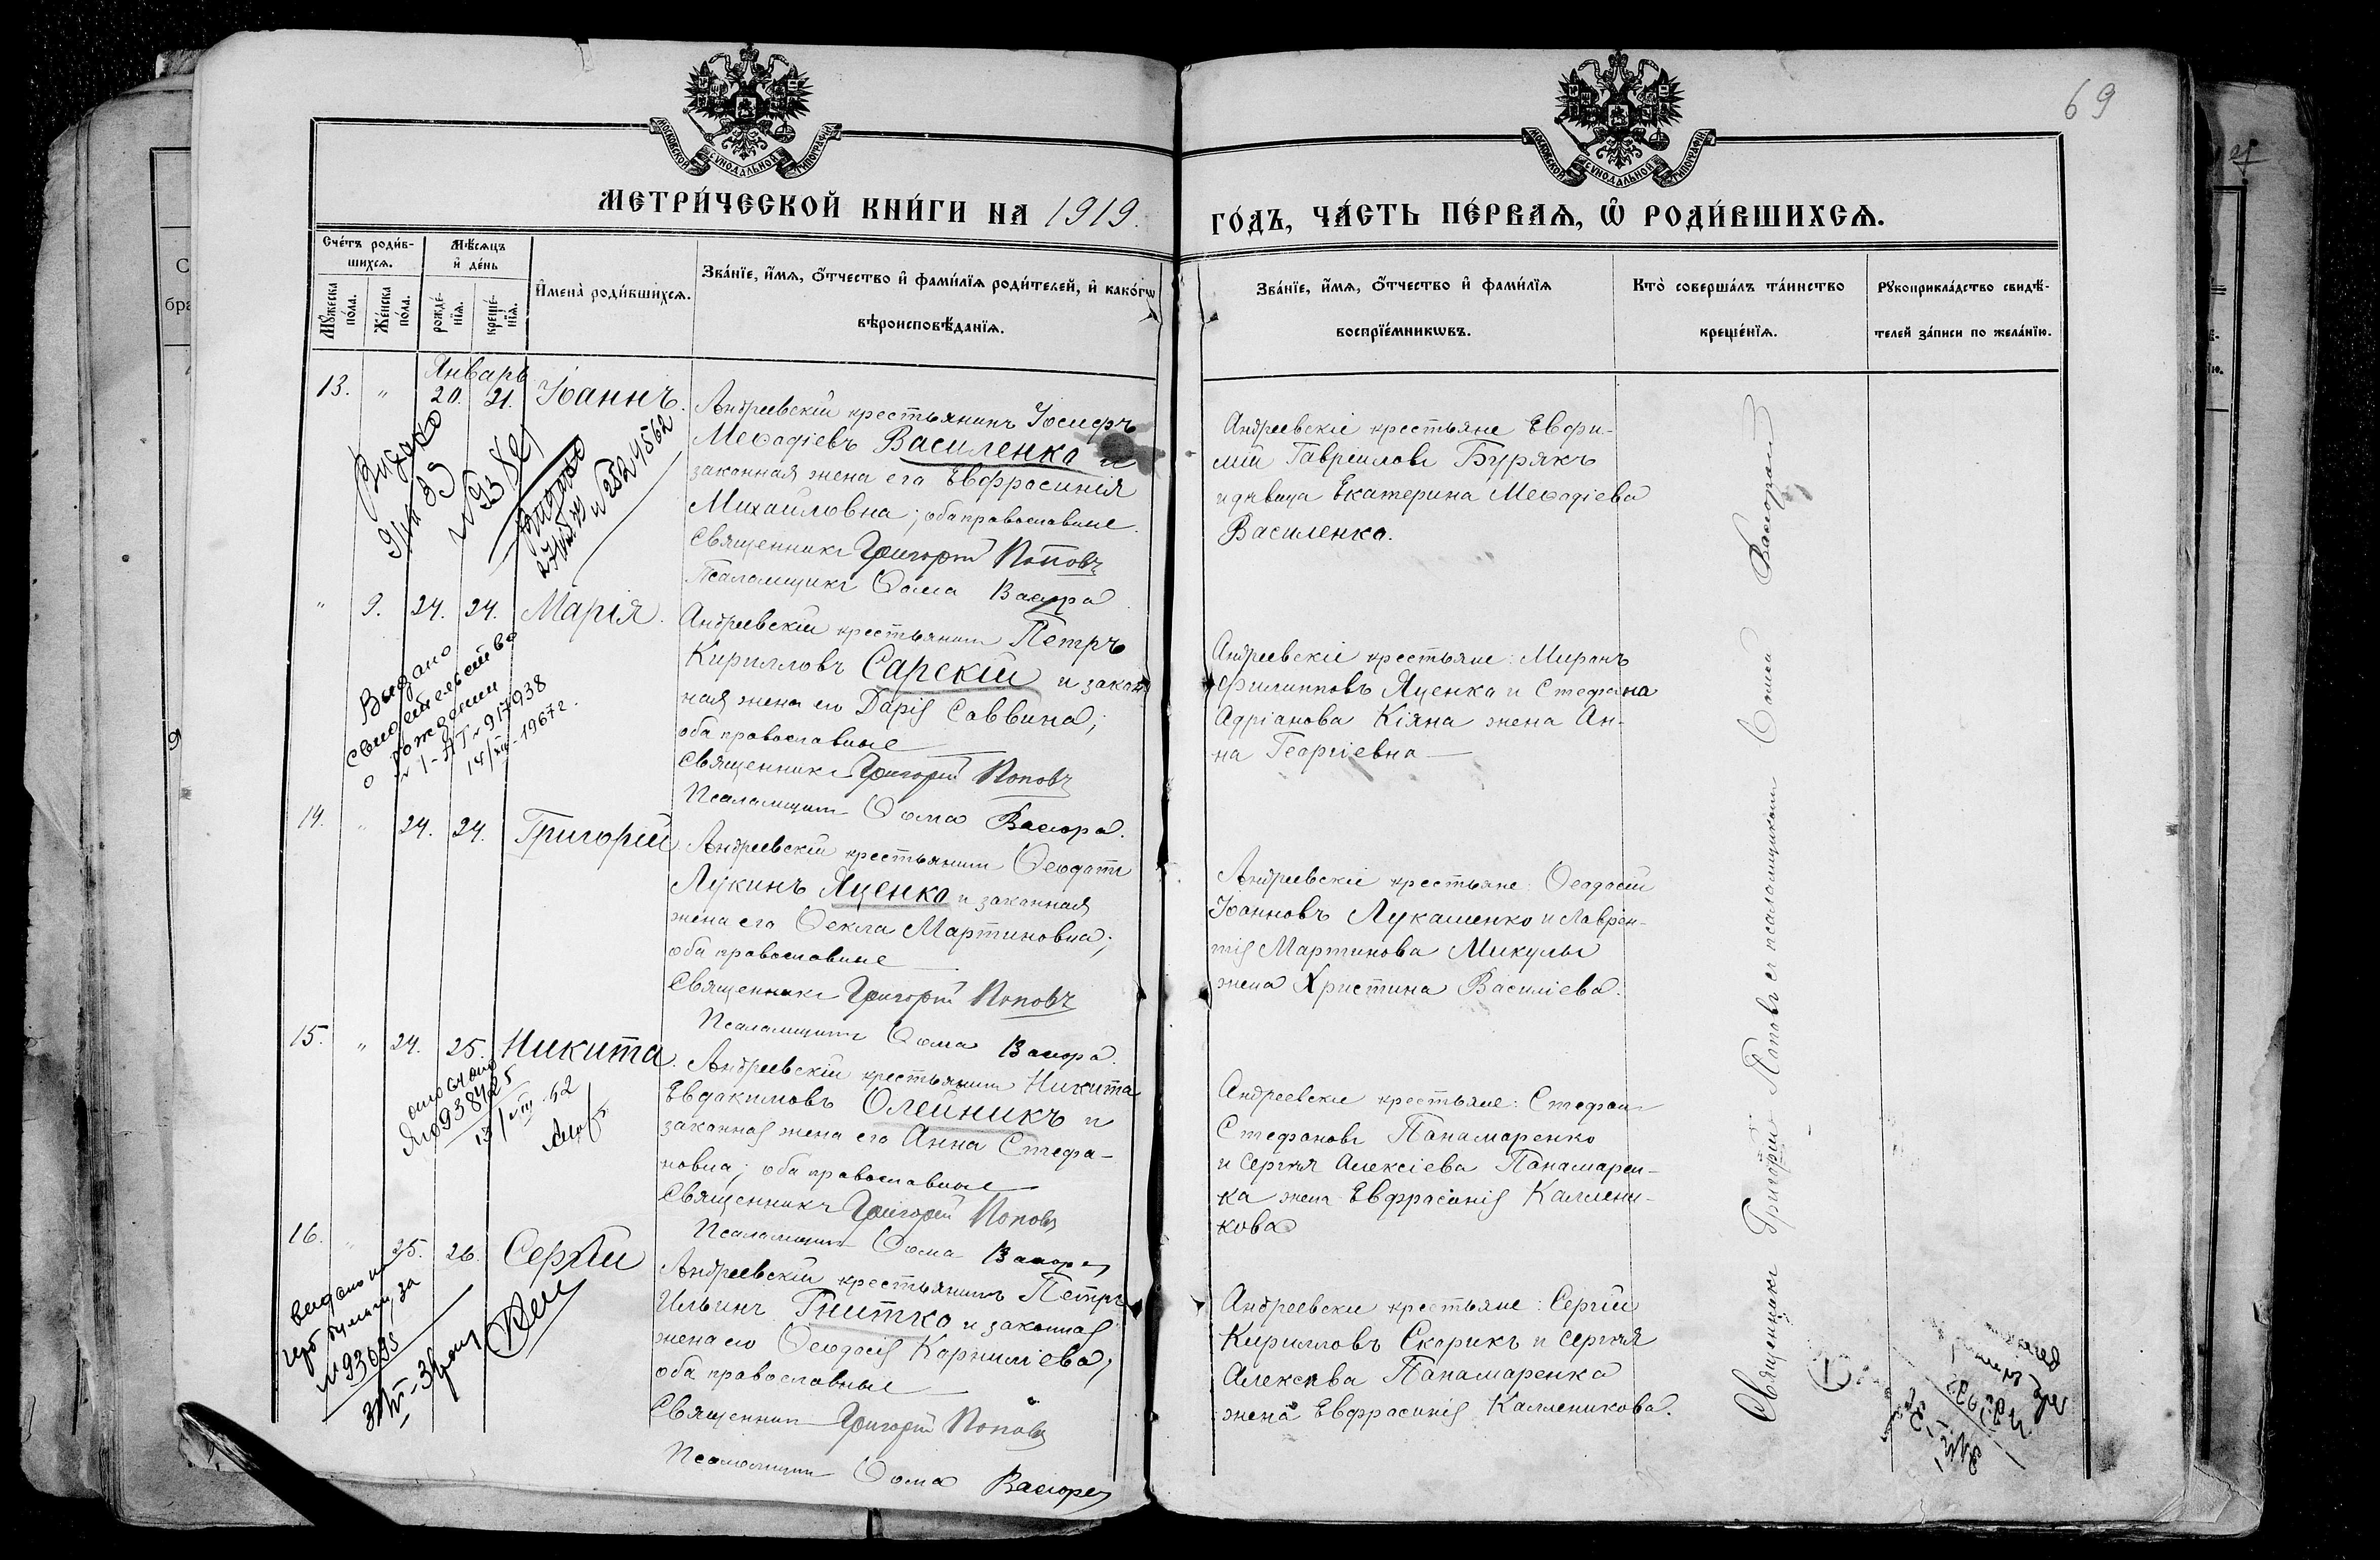 69
МОСКОВСКОЙ СѴНОДАЛЬНОЙ ТИПОГРАФІИ
МОСКОВСКОЙ СѴНОДАЛЬНОЙ ТИПОГРАФІИ
МЕТРИ́ЧЕСКОЙ КНИ́ГИ НА 1919.
ГО́ДЪ, ЧА́СТЬ ПЕ́РВАѦ, Ѽ РОДИ́ВШИХСѦ.
Сче́тъ роди́в-
шихсѧ.
Мꙋ́жеска по́ла.
Же́нска по́ла.
Мѣ́сѧцъ и҆ де́нь
рожде́-
нїѧ.
креще́-
нїѧ.
И҆мена̀ роди́вшихсѧ.
Зва́нїе, и҆́мѧ, ѻ҆́тчество и҆ фами́лїѧ роди́телей, и҆ како́гѡ
вѣроисповѣ́данїѧ.
Зва́нїе, и҆́мѧ, ѻ҆́тчество и҆ фами́лїѧ
воспрїе́мникѡвъ.
Кто̀ соверша́лъ та́инство
креще́нїѧ.
Рꙋкоприкла́дство свидѣ́-
телей за́писи по жела́нїю.
Январь
13. " 20. 21. Іоаннъ.
Андреевскій крестьянинъ Іосифъ
Меѳодіевъ Василенко и
законная жена его Евфросинія
Михайловна; оба православные.
Священникъ Григорій Поповъ
Псаломщикъ Ѳома
Андреевскіе крестьяне Евфи-
мій Гавріиловъ Бурякъ
и дѣвица Екатерина Меѳодіева
Василенко.
" 9. 24. 24. Марія.
Выдано
свидетельство
о рождении
917938
14/XII-1967г.
Андреевскій крестьянинъ Петръ
Кирилловъ Сарскій и закон
ная жена его Дарія Саввина;
оба православные
Священникъ Григорій Поповъ
Псаломщикъ Ѳома
Андреевскіе крестьяне: Миронъ
Филипповъ Яценко и Стефана
Адріанова Кіяна жена Ан-
на Георгіевна
14. " 24. 24. Григорій
Андреевскій крестьянинъ Ѳеодотъ
Лукинъ Яценко и законная
жена его Ѳекла Мартиновна;
оба православные
Священникъ Григорій Поповъ
Псаломщикъ Ѳома
Андреевскіе крестьяне: Ѳеодосій
Іоанновъ Лукашенко и Лаврен-
тія Мартинова Микулы
жена Христина Василіева.
15. " 24. 25. Никита.
Андреевскій крестьянинъ Никита
Евдокимовъ Олейникъ и
законная жена его Анна Стефа-
новна; оба православные
Священникъ Григорій Поповъ
Псаломщикъ Ѳома
Андреевскіе крестьяне: Стефанъ
Стефановъ Панамаренко
и Сергія Алексіева Панамарен-
ка жена Евфрасинія Каллени-
кова
16. " 25. 26. Сергій
Андреевскій крестьянинъ Петръ
Ильинъ Гнитко и законная
жена его Ѳеодосія Корниліева;
оба православные
Священникъ Григорій Поповъ
Псаломщикъ Ѳома
Андреевскіе крестьяне: Сергій
Кирилловъ Скорикъ и Сергія
Алексѣева Панамаренка
жена Евфрасинія Калленикова.
Священникъ Григорій Поповъ съ псаломщикомъ Ѳомой